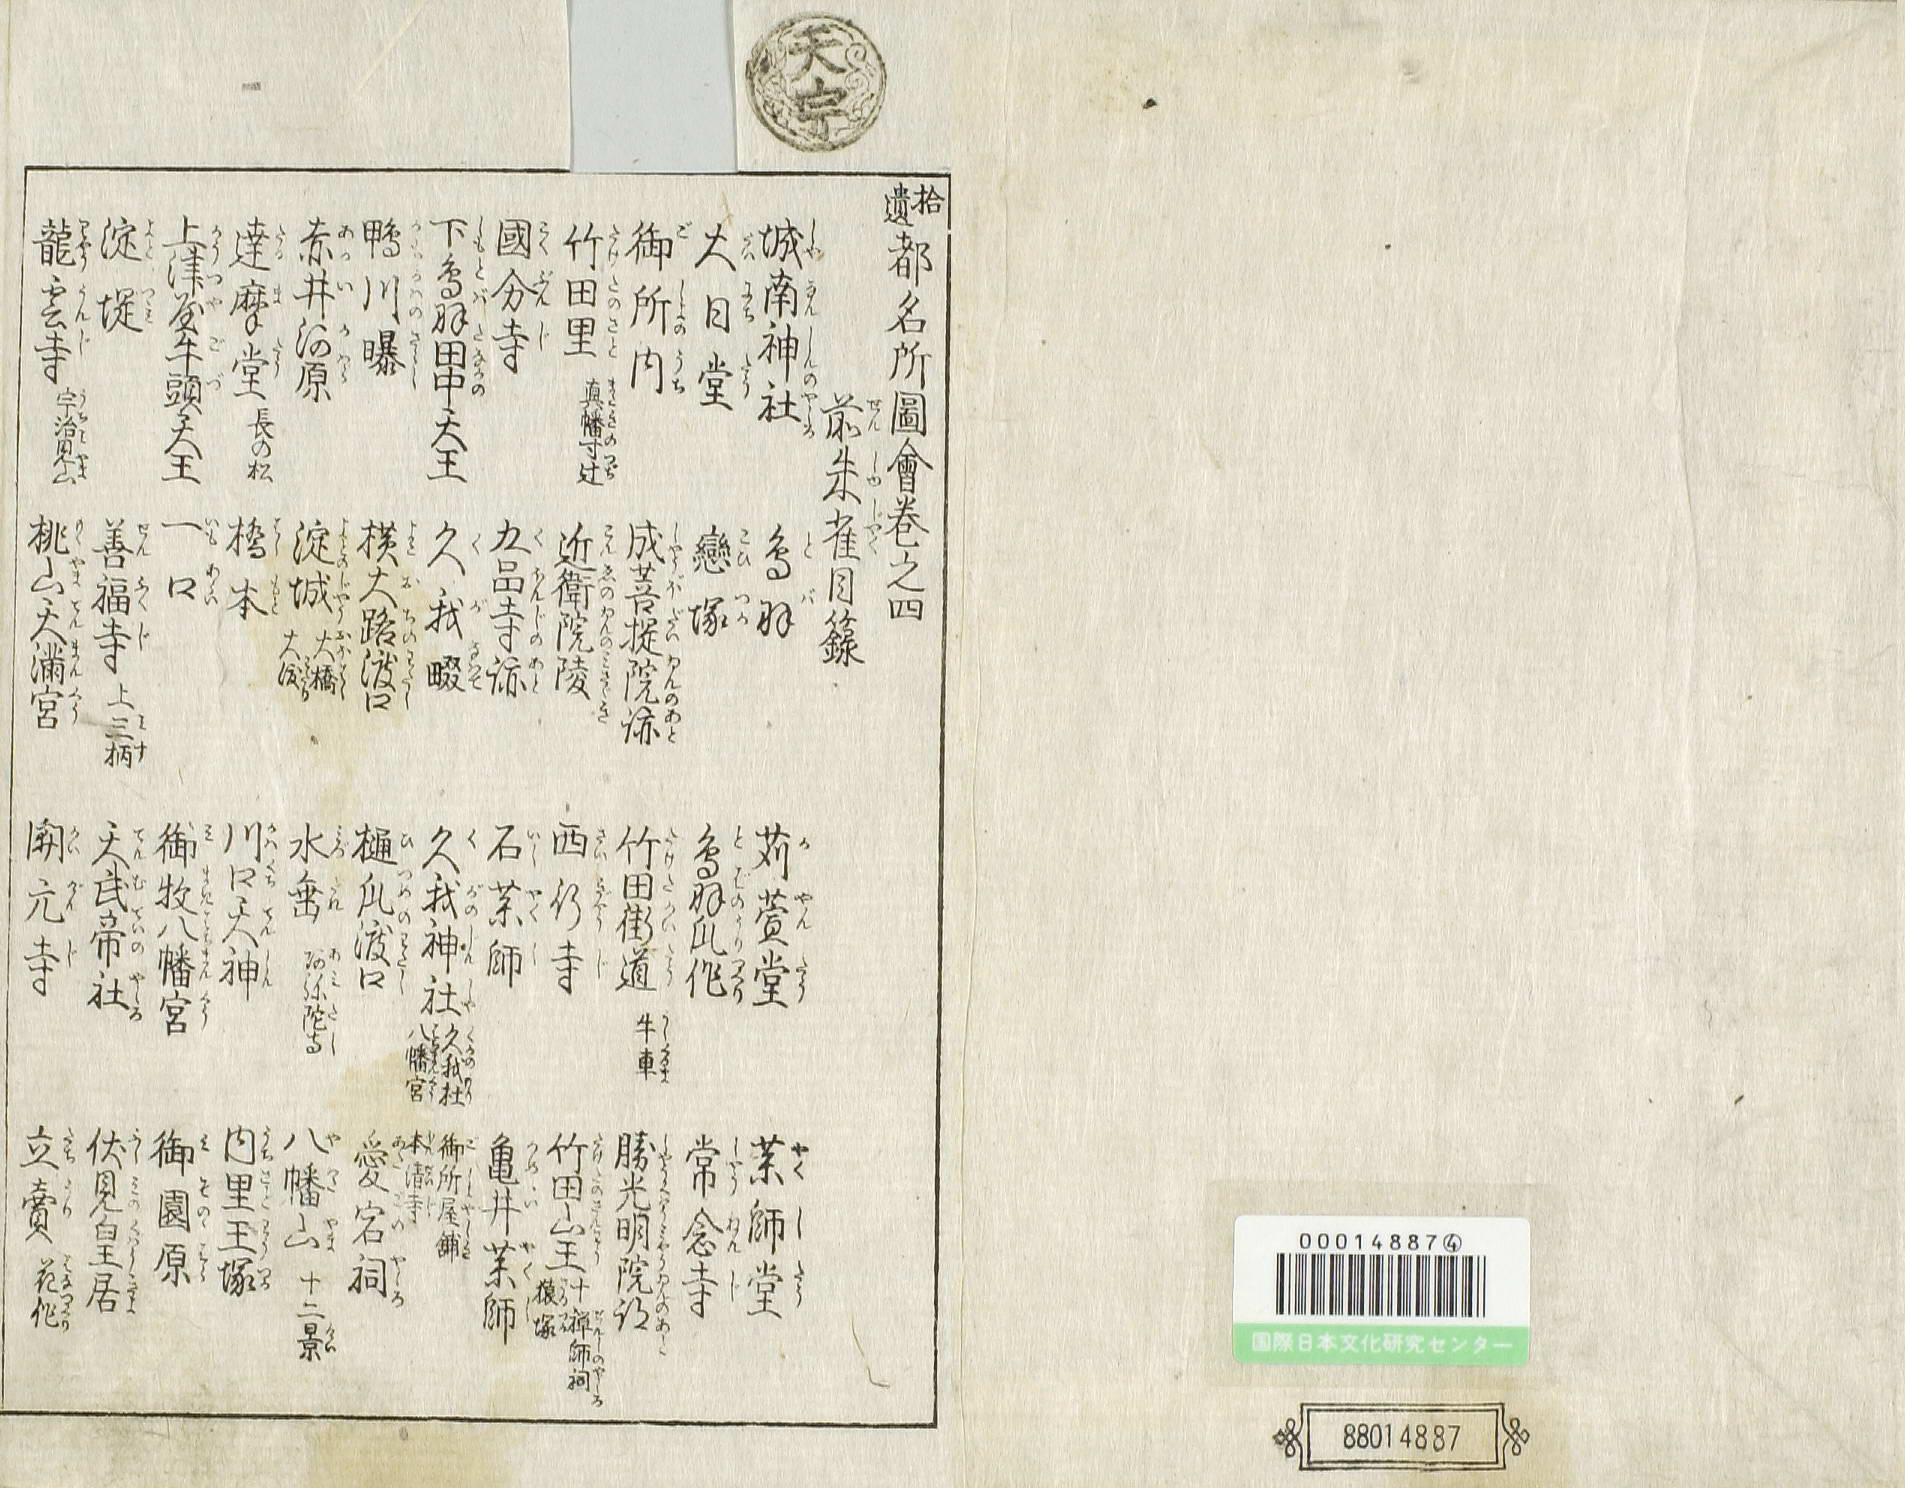 天宇
拾遺都名所圖會巻之四
前朱雀目録
城南神社 鳥羽 苅萱堂 薬師堂
大日堂 戀塚 鳥羽瓜作 常念寺
御所内 成菩提院跡 竹田街道 牛車 勝光明院跡
竹田里 真幡寸辻 近衛院陵 西行寺 竹田山王 十禅師祠 猿塚
國分寺 九品寺跡 石薬師 亀井薬師
下鳥羽田中天王 久我畷 久我神社 久我杜 八幡宮 御所屋鋪 本清寺
鴨川曝 横大路渡口 樋爪渡口 愛宕祠
赤井河原 淀城 大橋 大渡 水垂 阿弥陀寺 八幡山 十二景
達摩堂 長の松 橋本 川口天神 内里王塚
上津屋牛頭天王 一口 御牧八幡宮 御園原
淀堤 善福寺 上三栖 天武帝社 伏見皇居
龍雲寺 宇治見山 桃山天満宮 開元寺 立賣 花作
00014887④
国際日本文化研究センター
88014887